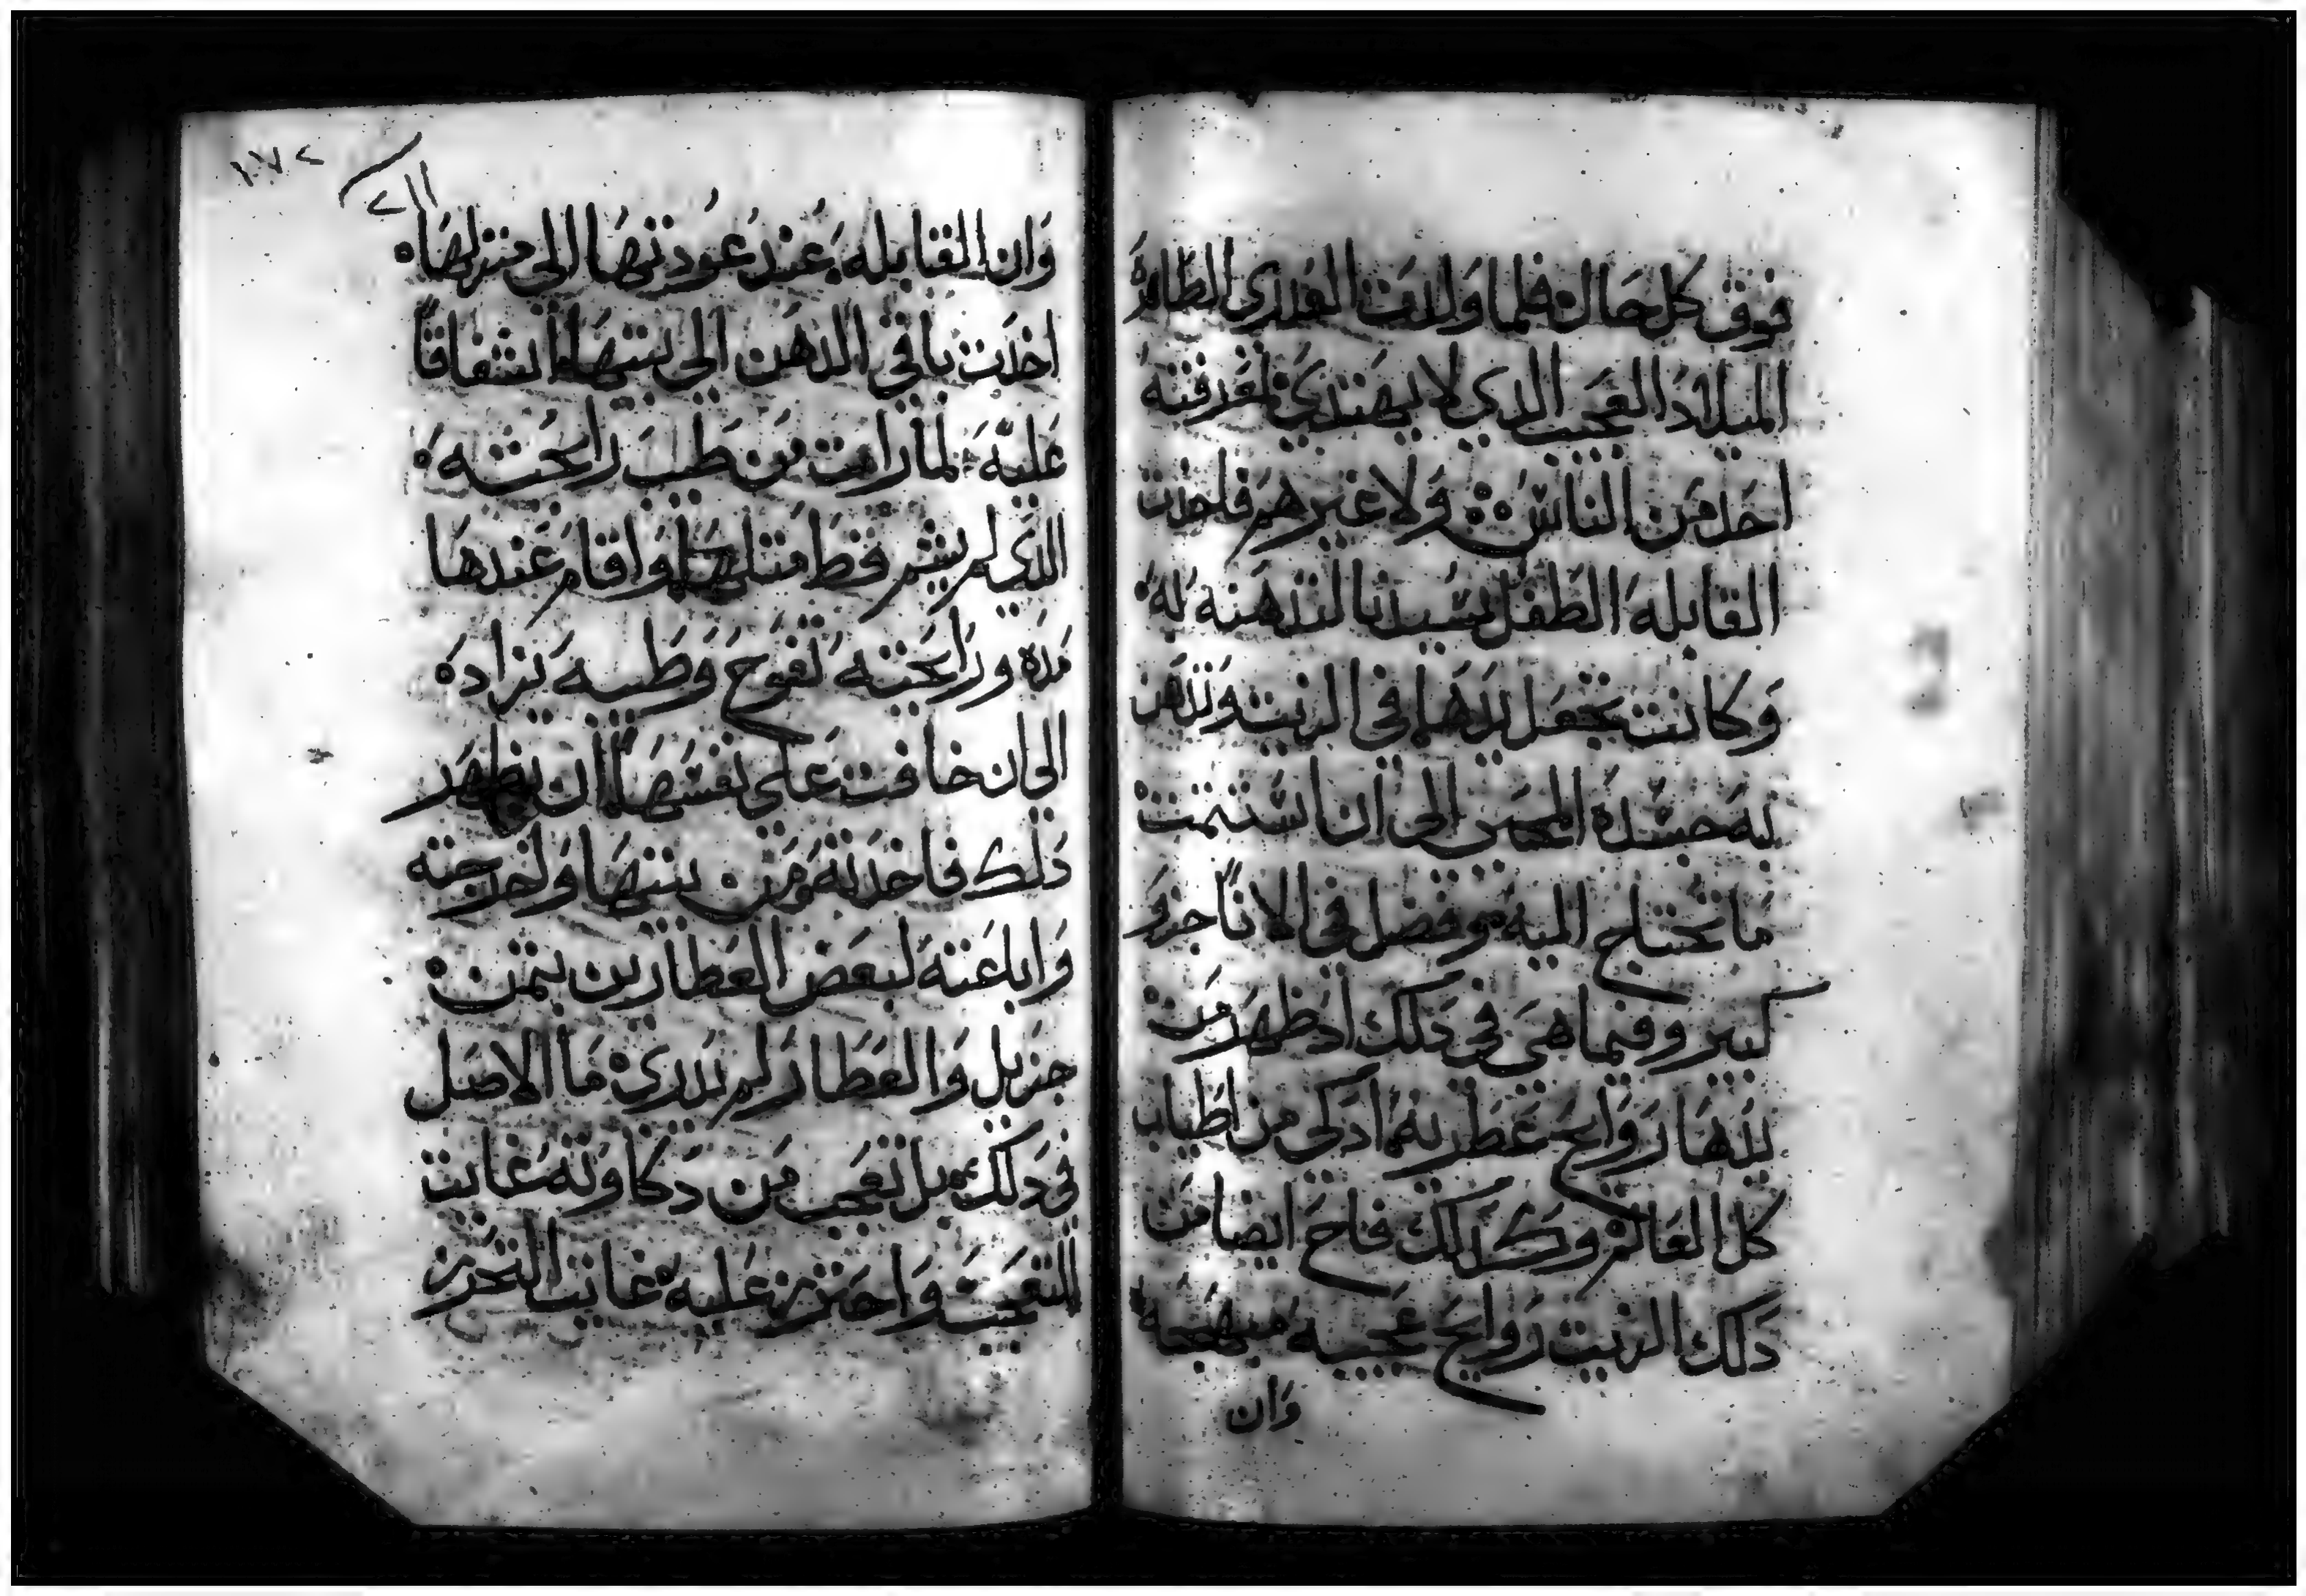 فوق كل حال فلما ولدت العدري الطاهره
الميلاد العجيب الدي لا يهتدي لمعرفته
احد من الناس ولا غيرهم فاخدت
القابله الطفل سيدنا لتدهنه له
وكانت تجعل يدها في الزيت وتدهن
به جسده المحيى الى ان استتمت
ما تحتاج اليه وفضل في الانا جزو
كبير وفيما هي في دلك اد ظهر من
يدها روايح عطريه ادكى من اطياب
كل العالم وكدلك فاح ايضا من
دلك الزيت روايح عجيبه مبهجه
وان
١٧٢
وان القابله عند عودتها الى منزلها
اخدت باقي الدهن الى بيتها اشفاقا
عليه لما رات من طيب رايحته
الدي لم يشم قط مثلها واقام عندها
مده ورايحته تفوح وطيبه يزاده
الى ان خافت على نفسها ان يظهر
دلك فاخدته من بيتها واخرجته
واباعته لبعض العطارين بتمن
جزيل والعطار لم يدري ما الاصل
في دلك بل تعجب من دكاوته غايت
التعجب واحترز عليه غايت التحرز